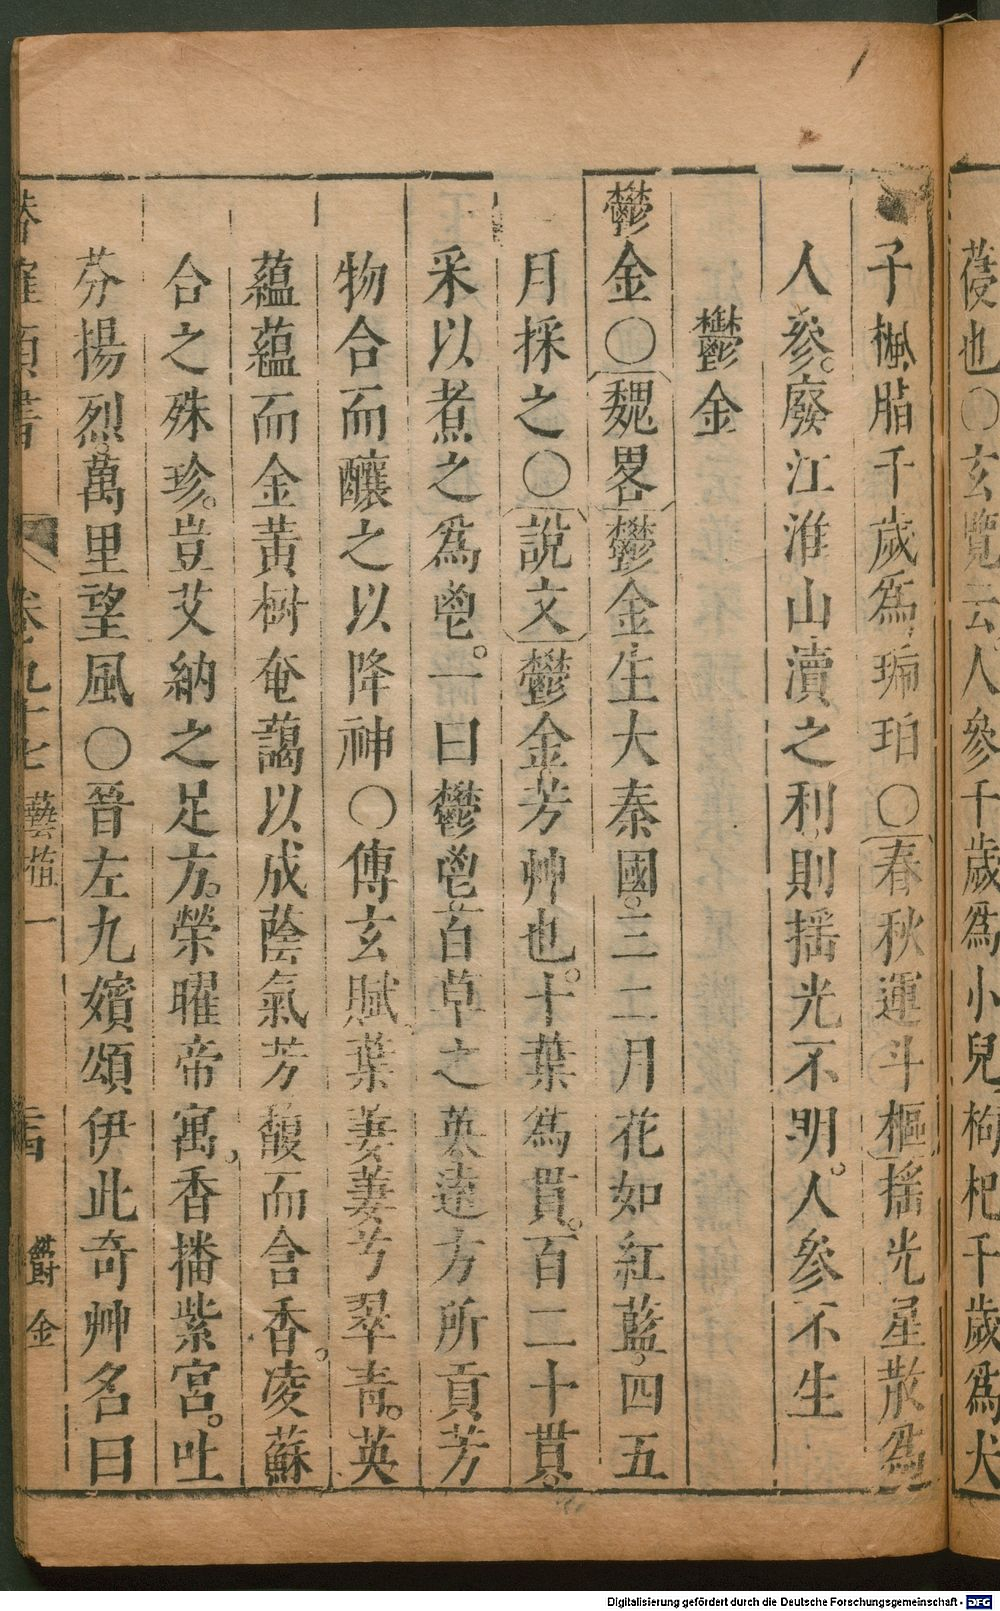 葠也〇玄覽云人參千歲爲小兒枸杞千歲爲犬
子楓脂千歲爲琥珀〇春秋運斗樞搖光星散爲
人參。廢江淮山瀆之利則揺光不明。人參不生
鬱金
鬱金〇魏畧鬱金生大秦國。三二月花如紅藍。四五
月採之〇說文鬱金芳艸也。十葉爲貫。百二十貫。
采以煮之爲鬯。一曰鬱鬯百草之英遠方所貢芳
物合而釀之以降神〇傅玄賦葉萋萋兮翠青。英
蘊蘊而金黃樹奄藹以成蔭氣芳馥而含香。凌蘇
合之殊珍。豈艾納之足方。榮曜帝寓。香播紫宮。吐
芬揚烈萬里望風〇晉左九嬪頌伊此奇艸名曰
卷九十七 藝植一 鬱金
Digitalisierung gefördert durch die Deutsche Forschungsgemeinschaft - DFG